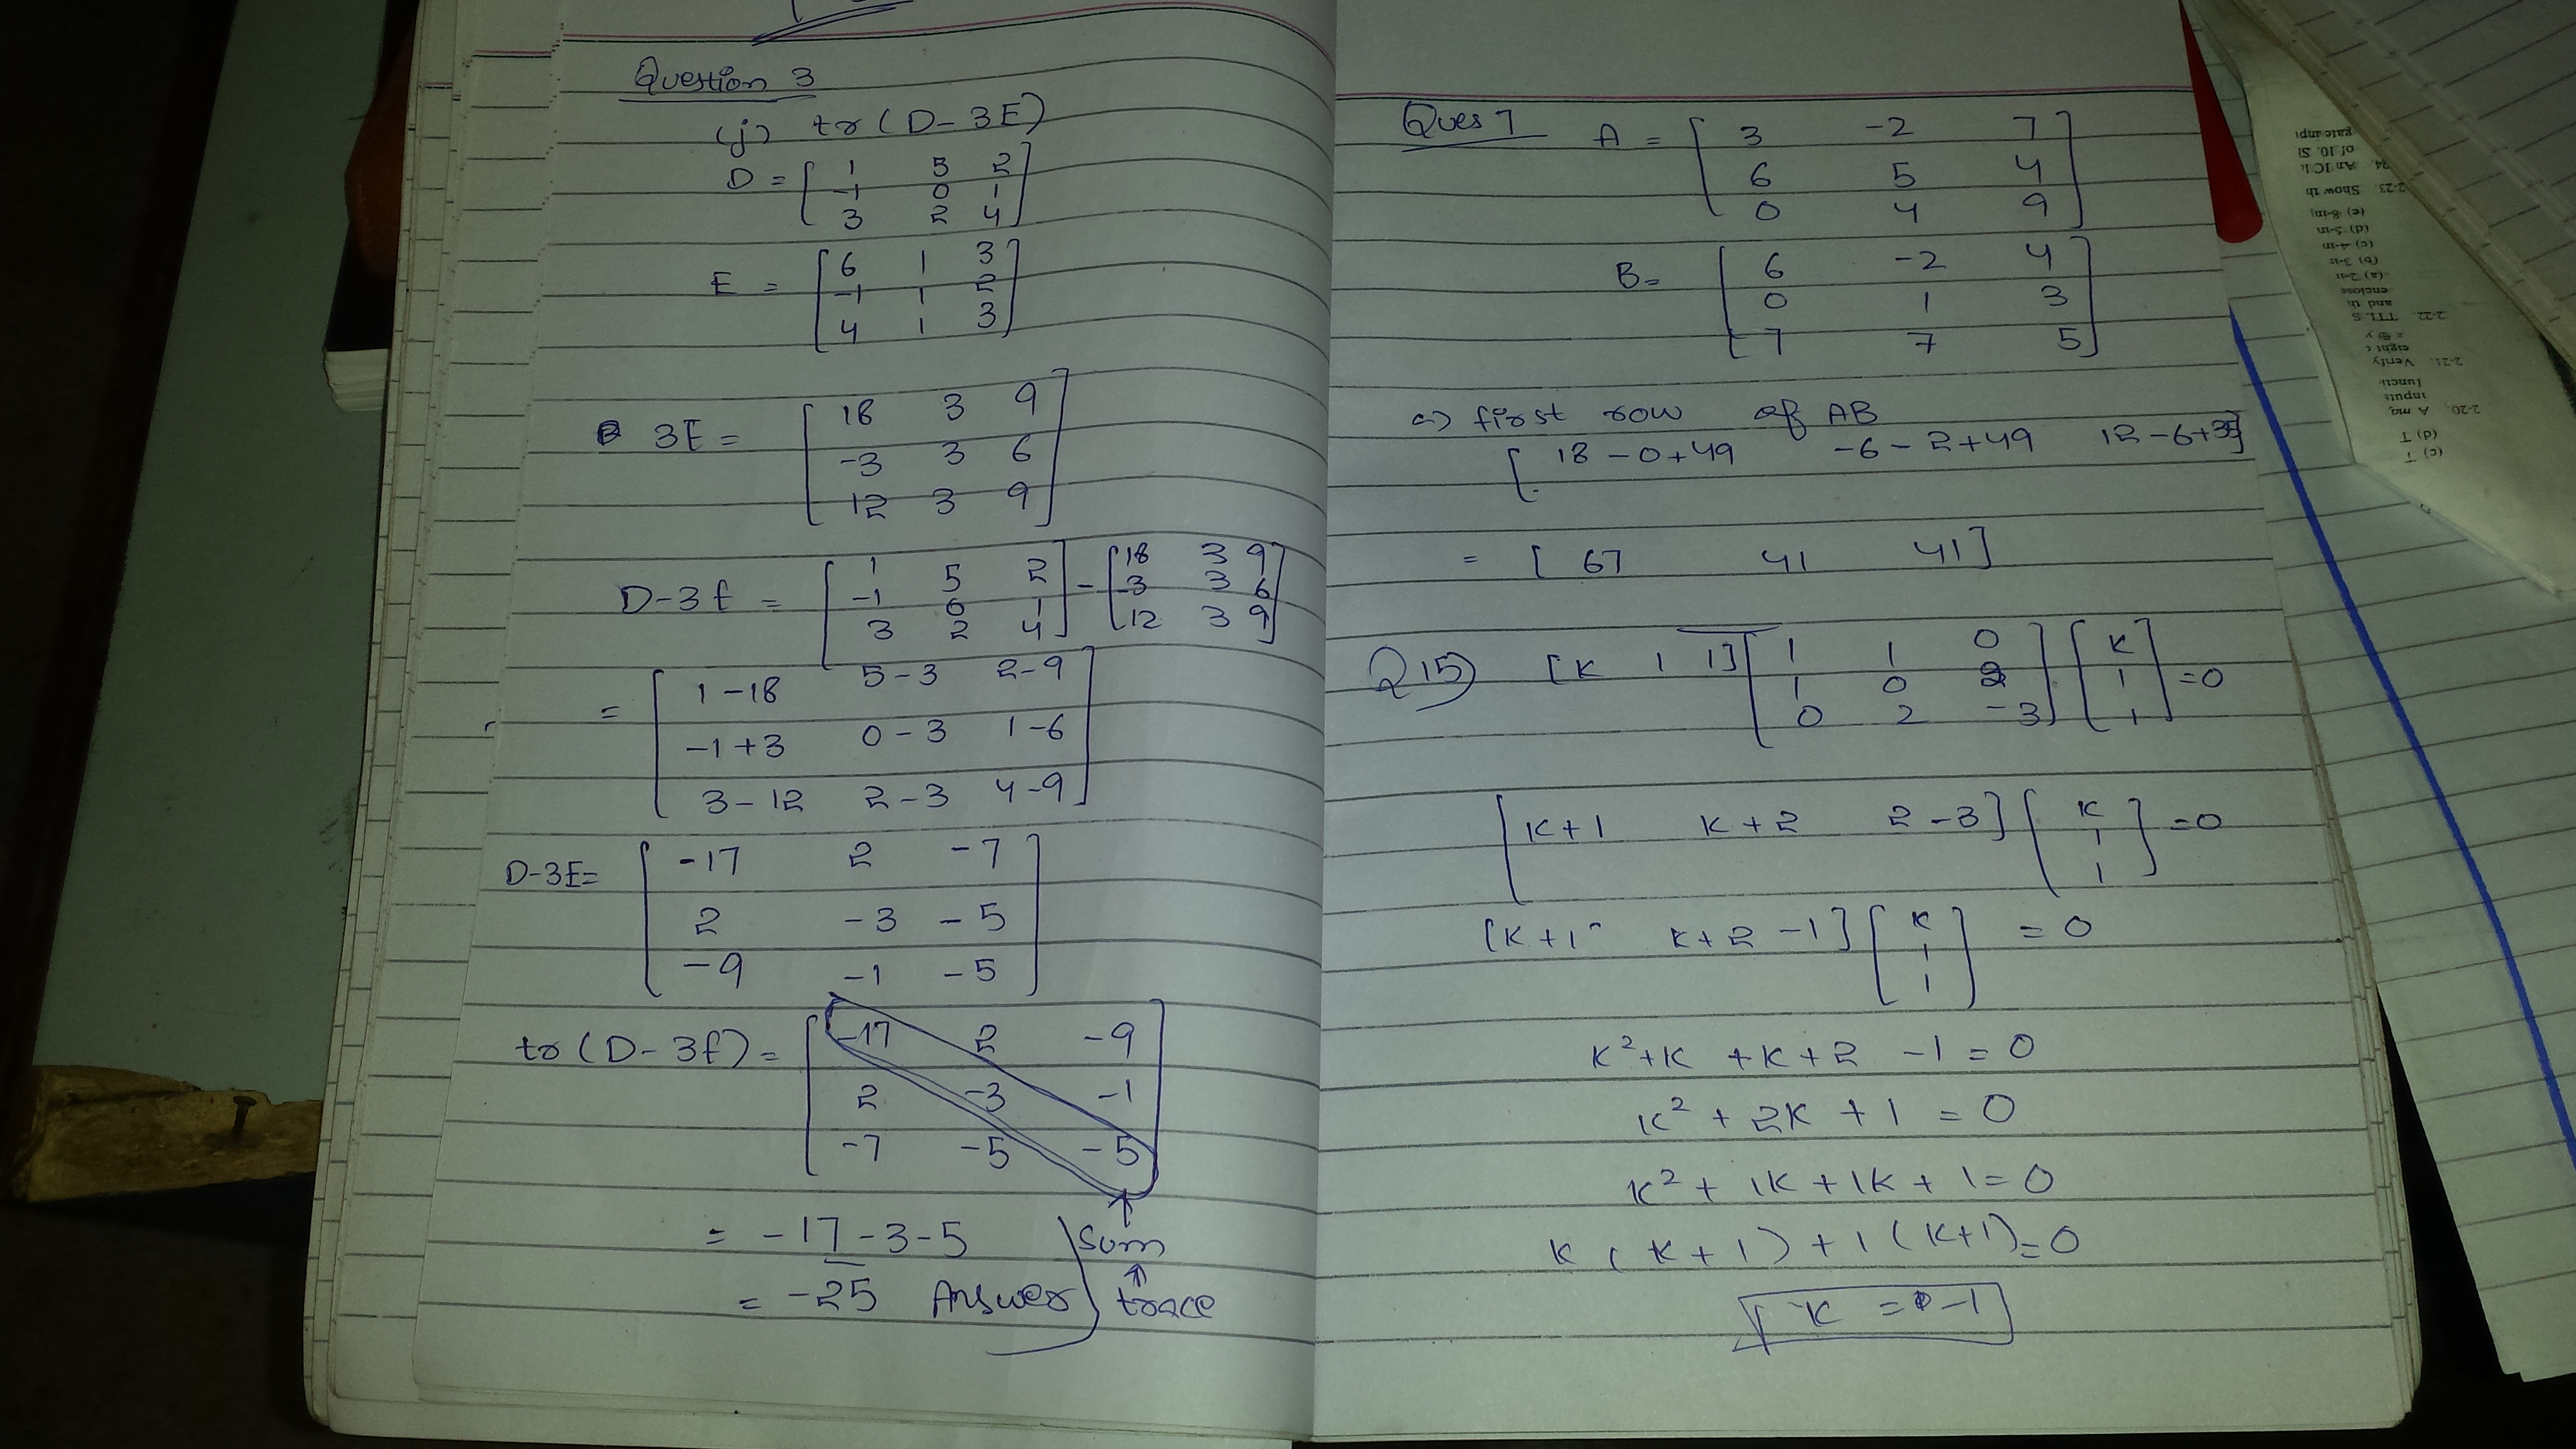 Question 3
(j) tr (D - 3E)
D = [ 1 5 2
-1 0 1
3 2 4 ]
E = [ 6 1 3
-1 1 2
4 1 3 ]
3E = [ 18 3 9
-3 3 6
12 3 9 ]
D-3E = [ 1 5 2
-1 0 1
3 2 4 ] - [ 18 3 9
-3 3 6
12 3 9 ]
= [ 1-18 5-3 2-9
-1+3 0-3 1-6
3-12 2-3 4-9 ]
D-3E= [ -17 2 -7
2 -3 -5
-9 -1 -5 ]
tr (D-3E) = [ -17 2 -9
2 -3 -1
-7 -5 -5 ]
↑
= -17-3-5 sum
↑
= -25 Answer trace
Ques 7 A = [ 3 -2 7
6 5 4
0 4 9 ]
B= [ 6 -2 4
0 1 3
7 7 5 ]
a) first row of AB
[ 18-0+49 -6-2+49 12-6+35 ]
= [ 67 41 41 ]
Q15) [K 1 1] [ 1 1 0
1 0 2
0 2 -3 ] [ K
1
1 ] =0
[ K+1 K+2 2-3 ] [ K
1
1 ] =0
[K+1 K+2 -1] [ K
1
1 ] = 0
K²+K +K+2 -1=0
K² + 2K + 1 = 0
K² + 1K + 1K + 1=0
K (K+1) +1 (K+1)=0
K = -1
2-20. A ma
inputs
functi
2-21. Verify
eight
x ⊕ y
2-22. TTL S
and th
enclose
(a) 2-in
(b) 3-in
(c) 4-in
(d) 5-in
(e) 8-in
2-23. Show th
An IC l
of 10. SI
gate inp
(c) T
(d) T